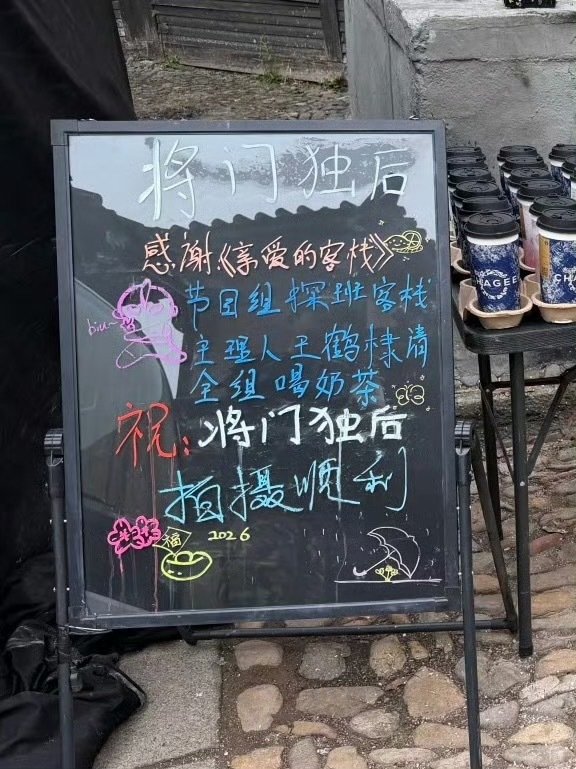 将门独后
感谢《亲爱的客栈》
节目组探班客栈
主理人王鹤棣请
全组喝奶茶
biu~
祝：将门独后
拍摄顺利
福
2026
CHAGEE
CHA